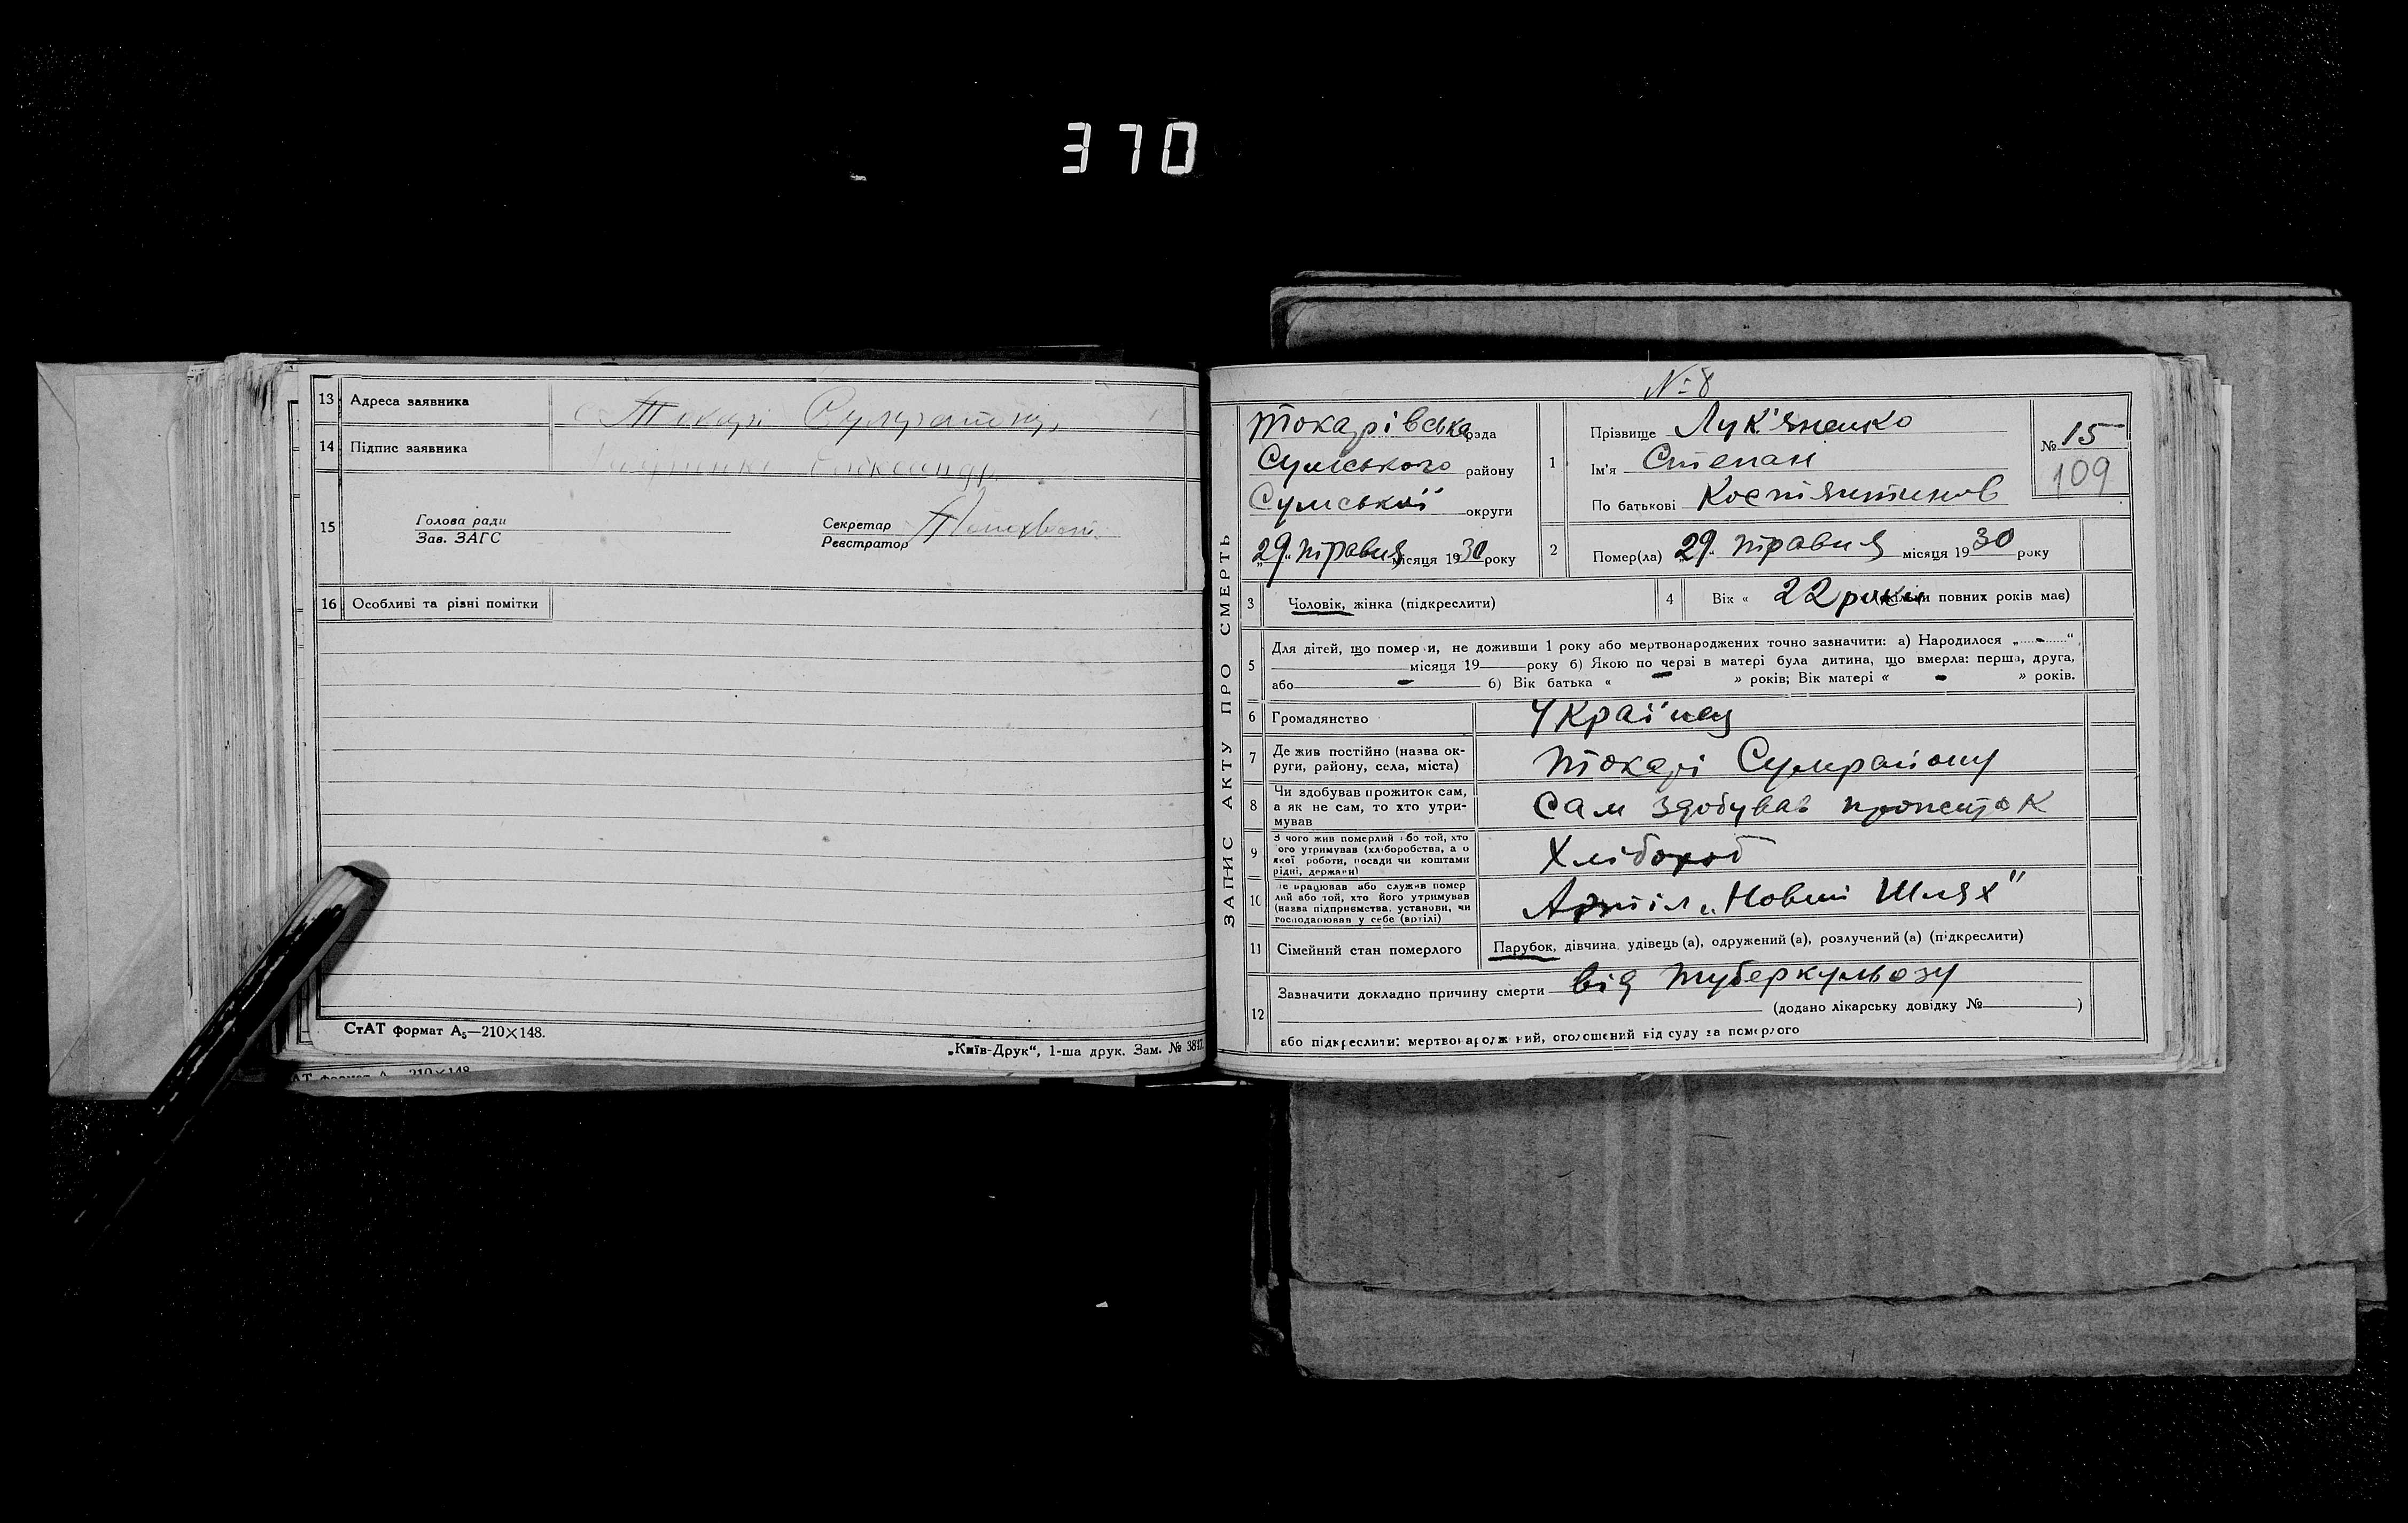 370
13 Адреса заявника
14 Підпис заявника
15 Голова ради
Зав. ЗАГС
Секретар
Реєстратор
16 Особливі та різні помітки
СтАТ формат А₅—210×148.
„Київ-Друк“, 1-ша друк. Зам. № 3847
№ 8
ЗАПИС АКТУ ПРО СМЕРТЬ
Токарівська рада
Сумського району
Сумської округи
„29“ травня місяця 1930 року
1 Прізвище Лук'яненко
Ім'я Степан
По батькові Костянтинов
№ 15
109
2 Помер(ла) „29“ травня місяця 1930 року
3 Чоловік, жінка (підкреслити)
4 Вік « 22 роки (скільки повних років має)
5 Для дітей, що померли, не доживши 1 року або мертвонароджених точно зазначити: а) Народилося „-“
місяця 19 року б) Якою по черзі в матері була дитина, що вмерла: перша, друга,
або - б) Вік батька « - » років; Вік матері « - » років.
6 Громадянство Українец
7 Де жив постійно (назва округи, району, села, міста) Токарі Сумрайону
8 Чи здобував прожиток сам, а як не сам, то хто утримував Сам здобував прожиток
9 З чого жив померлий або той, хто його утримував (хліборобства, а о якої роботи, посади чи коштами рідні, держави) Хлібороб
10 Де працював або служив померлий або той, хто його утримував (назва підприємства, установи, чи господарював у себе (артілі) Артіл „Новий Шлях"
11 Сімейний стан померлого Парубок, дівчина, удівець (а), одружений (а), розлучений (а) (підкреслити)
12 Зазначити докладно причину смерти від туберкульозу
(додано лікарську довідку № )
або підкреслити: мертвонароджений, оголошений від суду за померлого